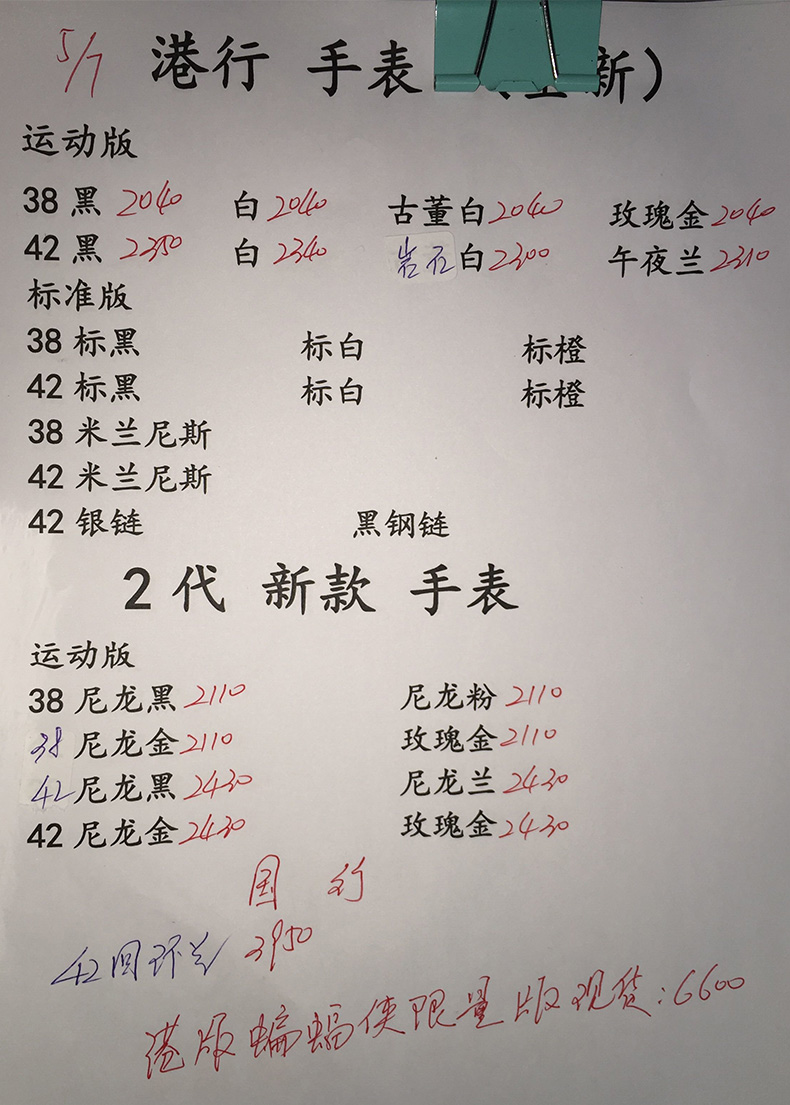 5/7 港行 手表 新）
运动版
38 黑 2040 白 2040 古董白 2040 玫瑰金 2040
42 黑 2350 白 2340 岩石白 2300 午夜兰 2310
标准版
38 标黑 标白 标橙
42 标黑 标白 标橙
38 米兰尼斯
42 米兰尼斯
42 银链 黑钢链
2代 新款 手表
运动版
38 尼龙黑 2110 尼龙粉 2110
38 尼龙金 2110 玫瑰金 2110
42 尼龙黑 2430 尼龙兰 2430
42 尼龙金 2430 玫瑰金 2430
国 行
42回环兰 3950
港版蝙蝠侠限量版现货:6600